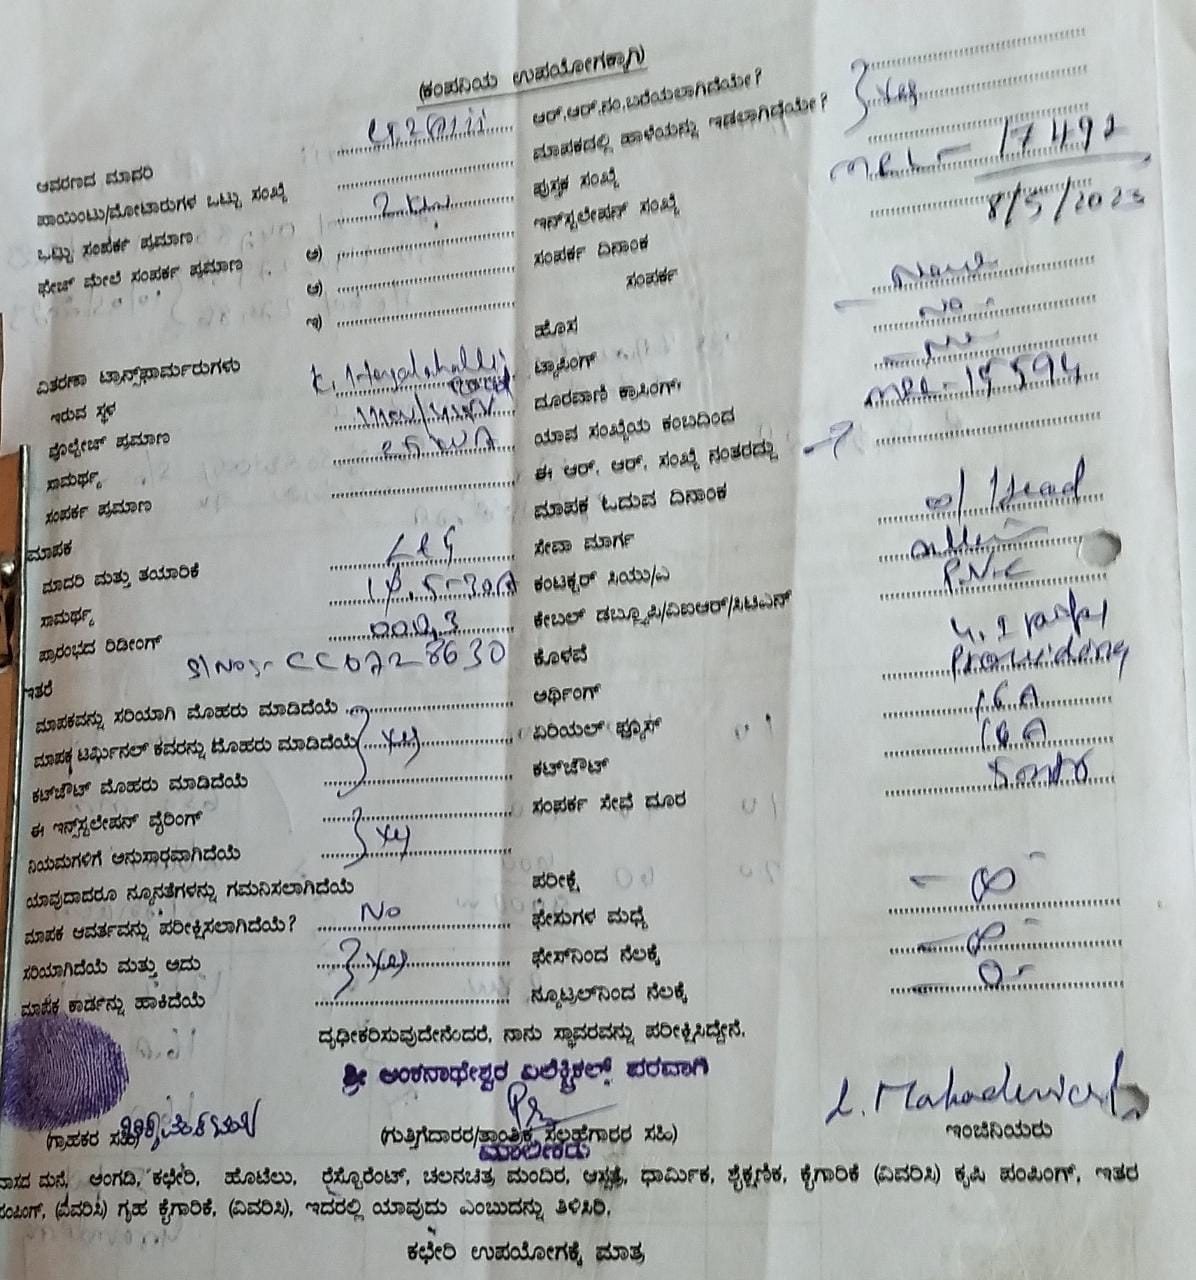 (ಕಂಪನಿಯ ಉಪಯೋಗಕ್ಕಾಗಿ)
ಆವರಣದ ಮಾದರಿ
ಪಾಯಿಂಟು/ಮೋಟಾರುಗಳ ಒಟ್ಟು ಸಂಖ್ಯೆ
ಒಟ್ಟು ಸಂಪರ್ಕ ಪ್ರಮಾಣ 2 KW
ಫೇಜ್ ಮೇಲೆ ಸಂಪರ್ಕ ಪ್ರಮಾಣ ಅ)
ಆ)
ಇ)
ವಿತರಣಾ ಟ್ರಾನ್ಸ್‌ಫಾರ್ಮರುಗಳು
ಇರುವ ಸ್ಥಳ
ವೋಲ್ಟೇಜ್ ಪ್ರಮಾಣ
ಸಾಮರ್ಥ್ಯ 25 KVA
ಸಂಪರ್ಕ ಪ್ರಮಾಣ
ಮಾಪಕ
ಮಾದರಿ ಮತ್ತು ತಯಾರಿಕೆ L&G
ಸಾಮರ್ಥ್ಯ 1Φ, 5-30A
ಪ್ರಾರಂಭದ ರಿಡೀಂಗ್ 000,3
Sl No:- CC0728630
ಇತರೆ
ಮಾಪಕವನ್ನು ಸರಿಯಾಗಿ ಮೊಹರು ಮಾಡಿದೆಯೆ
ಮಾಪಕ್ಕ ಟರ್ಮಿನಲ್ ಕವರನ್ನು ಮೊಹರು ಮಾಡಿದೆಯೆ } yes
ಕಟ್‌ಔಟ್ ಮೊಹರು ಮಾಡಿದೆಯೆ
ಈ ಇನ್ಸ್‌ಸ್ಟಲೇಷನ್ ವೈರಿಂಗ್
ನಿಯಮಗಳಿಗೆ ಅನುಸಾರವಾಗಿದೆಯೆ } yes
ಯಾವುದಾದರೂ ನ್ಯೂನತೆಗಳನ್ನು ಗಮನಿಸಲಾಗಿದೆಯೆ
ಮಾಪಕ ಆವರ್ತವನ್ನು ಪರೀಕ್ಷಿಸಲಾಗಿದೆಯೆ? No
ಸರಿಯಾಗಿದೆಯೆ ಮತ್ತು ಅದು } yes
ಮಾಪಕ ಕಾರ್ಡನ್ನು ಹಾಕಿದೆಯೆ
ಆರ್.ಆರ್.ನಂ.ಬರೆಯಲಾಗಿದೆಯೇ?
ಮಾಪಕದಲ್ಲಿ ಹಾಳೆಯನ್ನು ಇಡಲಾಗಿದೆಯೇ? } yes
ಪುಸ್ತಕ ಸಂಖ್ಯೆ
ಇನ್‌ಸ್ಟಲೇಷನ್ ಸಂಖ್ಯೆ 17492
ಸಂಪರ್ಕ ದಿನಾಂಕ 8/5/2023
ಸಂಪರ್ಕ
ಹೊಸ
ಟ್ಯಾಪಿಂಗ್ No
ದೂರವಾಣಿ ಕ್ರಾಸಿಂಗ್
ಯಾವ ಸಂಖ್ಯೆಯ ಕಂಬದಿಂದ
ಈ ಆರ್. ಆರ್. ಸಂಖ್ಯೆ ನಂತರದ್ದು
ಮಾಪಕ ಓದುವ ದಿನಾಂಕ
ಸೇವಾ ಮಾರ್ಗ o/Head
ಕಂಟಕ್ಟರ್ ಸಿಯು/ಎ
ಕೇಬಲ್ ಡಬ್ಲ್ಯೂಪಿ/ವಿಐಆರ್/ಸಿಟಿಎಸ್ P.V.C
ಕೊಳವೆ
ಅರ್ಥಿಂಗ್ Prowiding
ಏರಿಯಲ್ ಫ್ಯೂಸ್ 16A
ಕಟ್‌ಔಟ್ 16A
ಸಂಪರ್ಕ ಸೇವೆ ದೂರ
ಪರೀಕ್ಷೆ
ಫೇಸುಗಳ ಮಧ್ಯೆ
ಫೇಸ್‌ನಿಂದ ನೆಲಕ್ಕೆ
ನ್ಯೂಟ್ರಲ್‌ನಿಂದ ನೆಲಕ್ಕೆ
ದೃಢೀಕರಿಸುವುದೇನೆಂದರೆ, ನಾನು ಸ್ಥಾವರವನ್ನು ಪರೀಕ್ಷಿಸಿದ್ದೇನೆ.
ಶ್ರೀ ಅಂಕನಾಥೇಶ್ವರ ಎಲೆಕ್ಟ್ರಿಕಲ್ಸ್ ಪರವಾಗಿ
L. Mahadevas
(ಗ್ರಾಹಕರ ಸಹಿ) (ಗುತ್ತಿಗೆದಾರರ/ತಾಂತ್ರಿಕ ಸಲಹೆಗಾರರ ಸಹಿ) ಇಂಜಿನಿಯರು
ಮಾಲೀಕರು
ವಾಸದ ಮನೆ, ಅಂಗಡಿ, ಕಛೇರಿ, ಹೊಟೆಲು, ರೆಸ್ಟೊರೆಂಟ್, ಚಲನಚಿತ್ರ ಮಂದಿರ, ಆಸ್ಪತ್ರೆ, ಧಾರ್ಮಿಕ, ಶೈಕ್ಷಣಿಕ, ಕೈಗಾರಿಕೆ (ವಿವರಿಸಿ) ಕೃಷಿ ಪಂಪಿಂಗ್, ಇತರ
ಪಂಪಿಂಗ್, (ವಿವರಿಸಿ) ಗೃಹ ಕೈಗಾರಿಕೆ, (ವಿವರಿಸಿ), ಇದರಲ್ಲಿ ಯಾವುದು ಎಂಬುದನ್ನು ತಿಳಿಸಿರಿ.
ಕಛೇರಿ ಉಪಯೋಗಕ್ಕೆ ಮಾತ್ರ